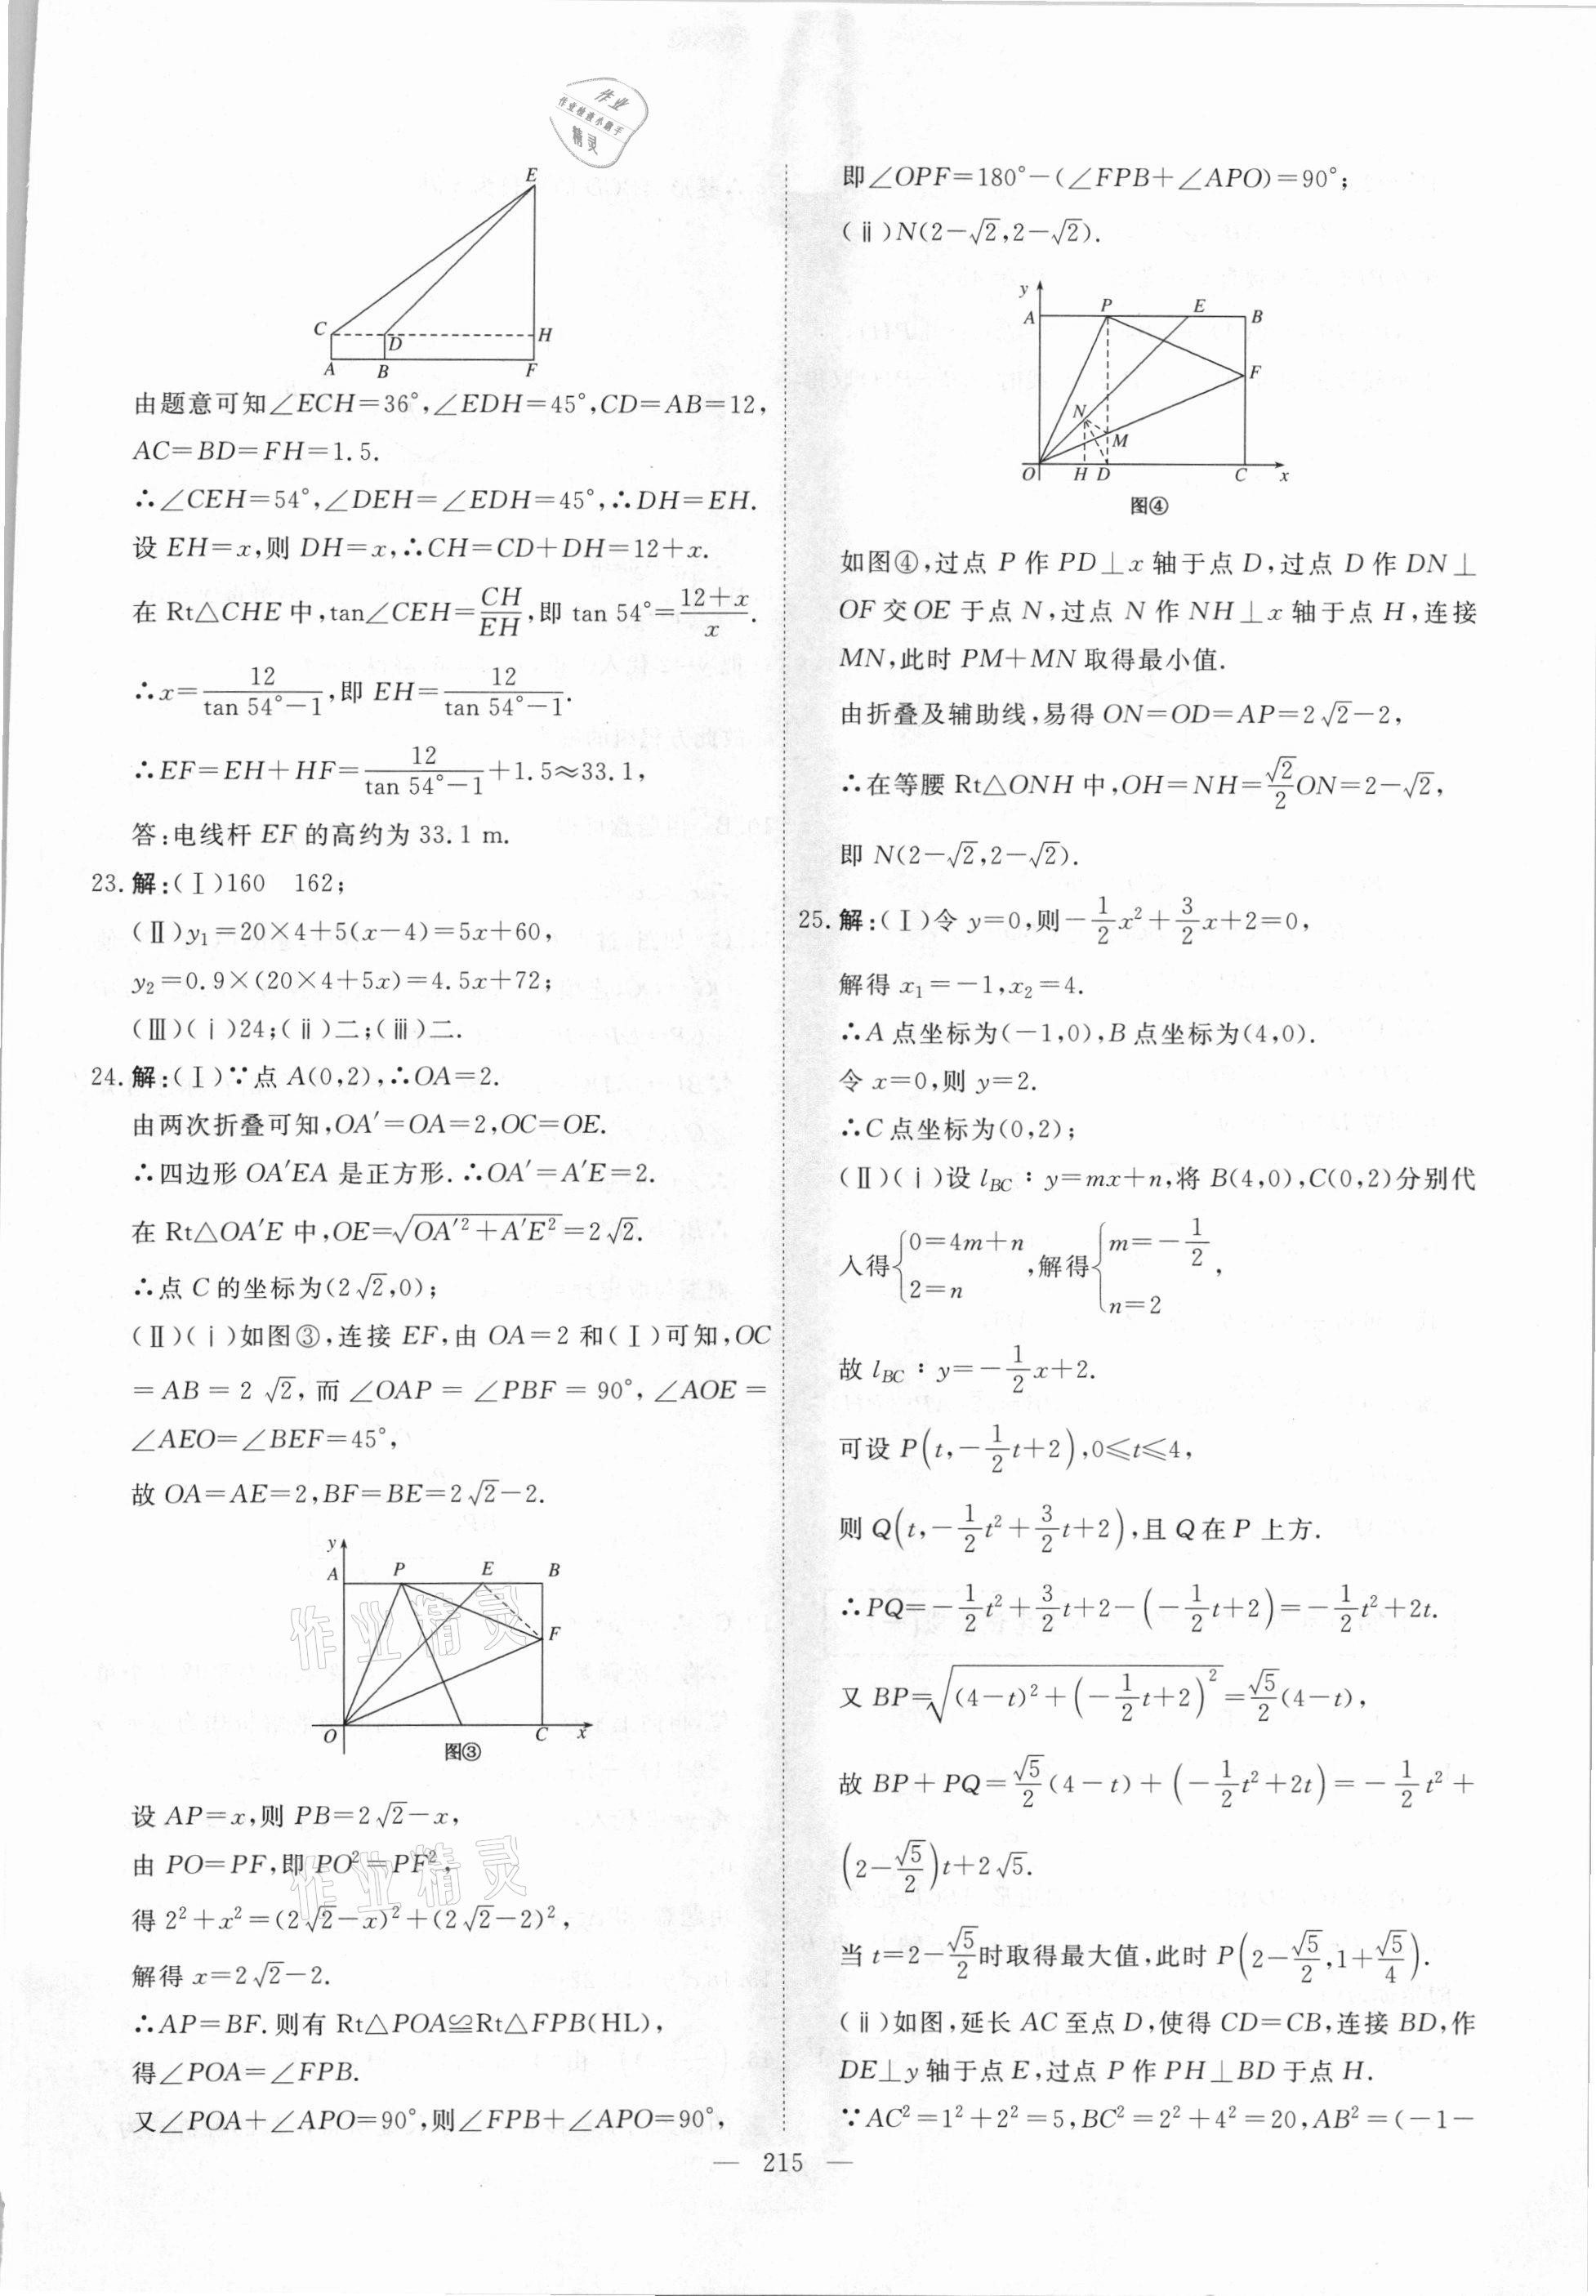 作业
作业检查小助手
精灵
E
C
D
H
A
B
F
由题意可知∠ECH=36°,∠EDH=45°,CD=AB=12,
AC=BD=FH=1.5.
∴∠CEH=54°,∠DEH=∠EDH=45°,∴DH=EH.
设 EH=x,则 DH=x,∴CH=CD+DH=12+x.
在 Rt△CHE 中,tan∠CEH=CH/EH,即 tan 54°=(12+x)/x.
∴x=12/(tan 54°-1),即 EH=12/(tan 54°-1).
∴EF=EH+HF=12/(tan 54°-1)+1.5≈33.1,
答:电线杆 EF 的高约为 33.1 m.
23. 解:(Ⅰ)160 162;
(Ⅱ)y₁=20×4+5(x-4)=5x+60,
y₂=0.9×(20×4+5x)=4.5x+72;
(Ⅲ)(ⅰ)24;(ⅱ)二;(ⅲ)二.
24. 解:(Ⅰ)∵点 A(0,2),∴OA=2.
由两次折叠可知,OA′=OA=2,OC=OE.
∴四边形 OA′EA 是正方形.∴OA′=A′E=2.
在 Rt△OA′E 中,OE=√(OA′²+A′E²)=2√2.
∴点 C 的坐标为(2√2,0);
(Ⅱ)(ⅰ)如图③,连接 EF,由 OA=2 和(Ⅰ)可知,OC
=AB=2√2,而∠OAP=∠PBF=90°,∠AOE=
∠AEO=∠BEF=45°,
故 OA=AE=2,BF=BE=2√2-2.
y
A
P
E
B
F
O
C
x
图③
作业精灵
设 AP=x,则 PB=2√2-x,
由 PO=PF,即 PO²=PF²,
作业精灵
得 2²+x²=(2√2-x)²+(2√2-2)²,
解得 x=2√2-2.
∴AP=BF.则有 Rt△POA≌Rt△FPB(HL),
得∠POA=∠FPB.
又∠POA+∠APO=90°,则∠FPB+∠APO=90°,
即∠OPF=180°-(∠FPB+∠APO)=90°;
(ⅱ)N(2-√2,2-√2).
y
A
P
E
B
F
N
M
O
H
D
C
x
图④
如图④,过点 P 作 PD⊥x 轴于点 D,过点 D 作 DN⊥
OF 交 OE 于点 N,过点 N 作 NH⊥x 轴于点 H,连接
MN,此时 PM+MN 取得最小值.
由折叠及辅助线,易得 ON=OD=AP=2√2-2,
∴在等腰 Rt△ONH 中,OH=NH=√2/2 ON=2-√2,
即 N(2-√2,2-√2).
25. 解:(Ⅰ)令 y=0,则-1/2x²+3/2x+2=0,
解得 x₁=-1,x₂=4.
∴A 点坐标为(-1,0),B 点坐标为(4,0).
令 x=0,则 y=2.
∴C 点坐标为(0,2);
(Ⅱ)(ⅰ)设 l_BC:y=mx+n,将 B(4,0),C(0,2)分别代
入得{0=4m+n 2=n,解得{m=-1/2 n=2,
故 l_BC:y=-1/2x+2.
可设 P(t,-1/2t+2),0≤t≤4,
则 Q(t,-1/2t²+3/2t+2),且 Q 在 P 上方.
∴PQ=-1/2t²+3/2t+2-(-1/2t+2)=-1/2t²+2t.
又 BP=√((4-t)²+(-1/2t+2)²)=√5/2(4-t),
故 BP+PQ=√5/2(4-t)+(-1/2t²+2t)=-1/2t²+
(2-√5/2)t+2√5.
当 t=2-√5/2时取得最大值,此时 P(2-√5/2,1+√5/4).
(ⅱ)如图,延长 AC 至点 D,使得 CD=CB,连接 BD,作
DE⊥y 轴于点 E,过点 P 作 PH⊥BD 于点 H.
∵AC²=1²+2²=5,BC²=2²+4²=20,AB²=(-1-
— 215 —